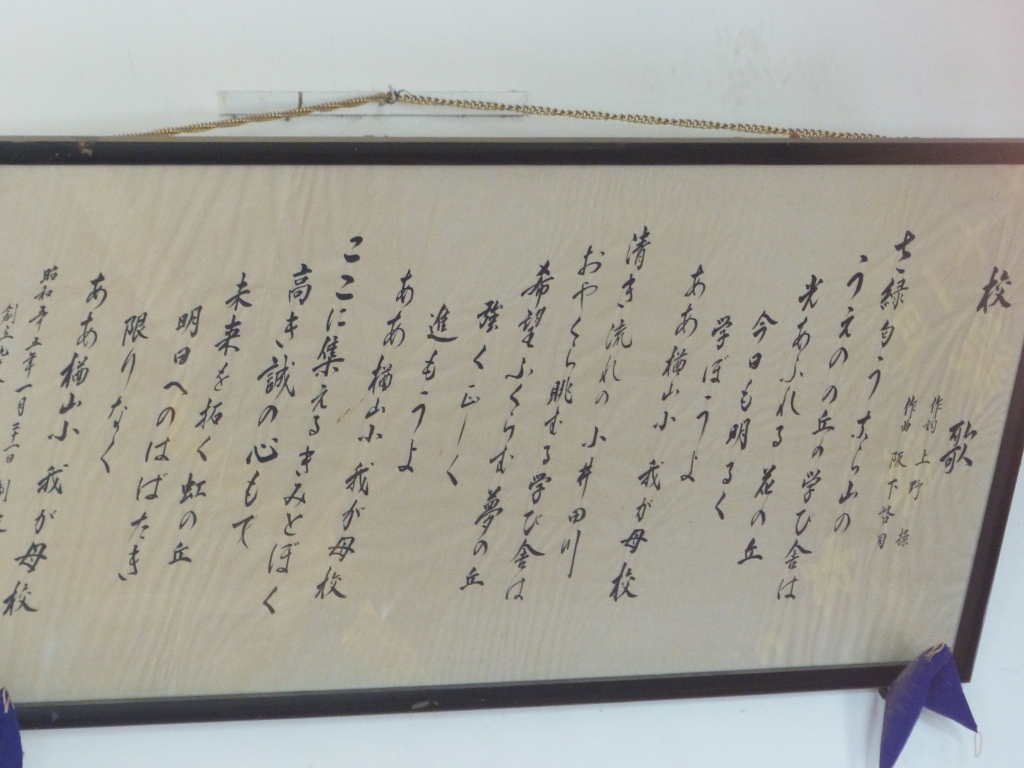 校歌
作詞 上野 操
作曲 阪下啓司
緑匂う なら山の
うえのの丘の学び舎は
光あふれる 花の丘
今日も明るく
学ぼうよ
ああ楢山小 我が母校
清き流れの 小井田川
おやぐら眺むる学び舎は
希望ふくらむ 夢の丘
強く正しく
進もうよ
ああ楢山小 我が母校
ここに集えるきみとぼく
高き誠の心もて
未来を拓く虹の丘
明日へのはばたき
限りなく
ああ楢山小 我が母校
昭和五十五年一月二十一日 制定